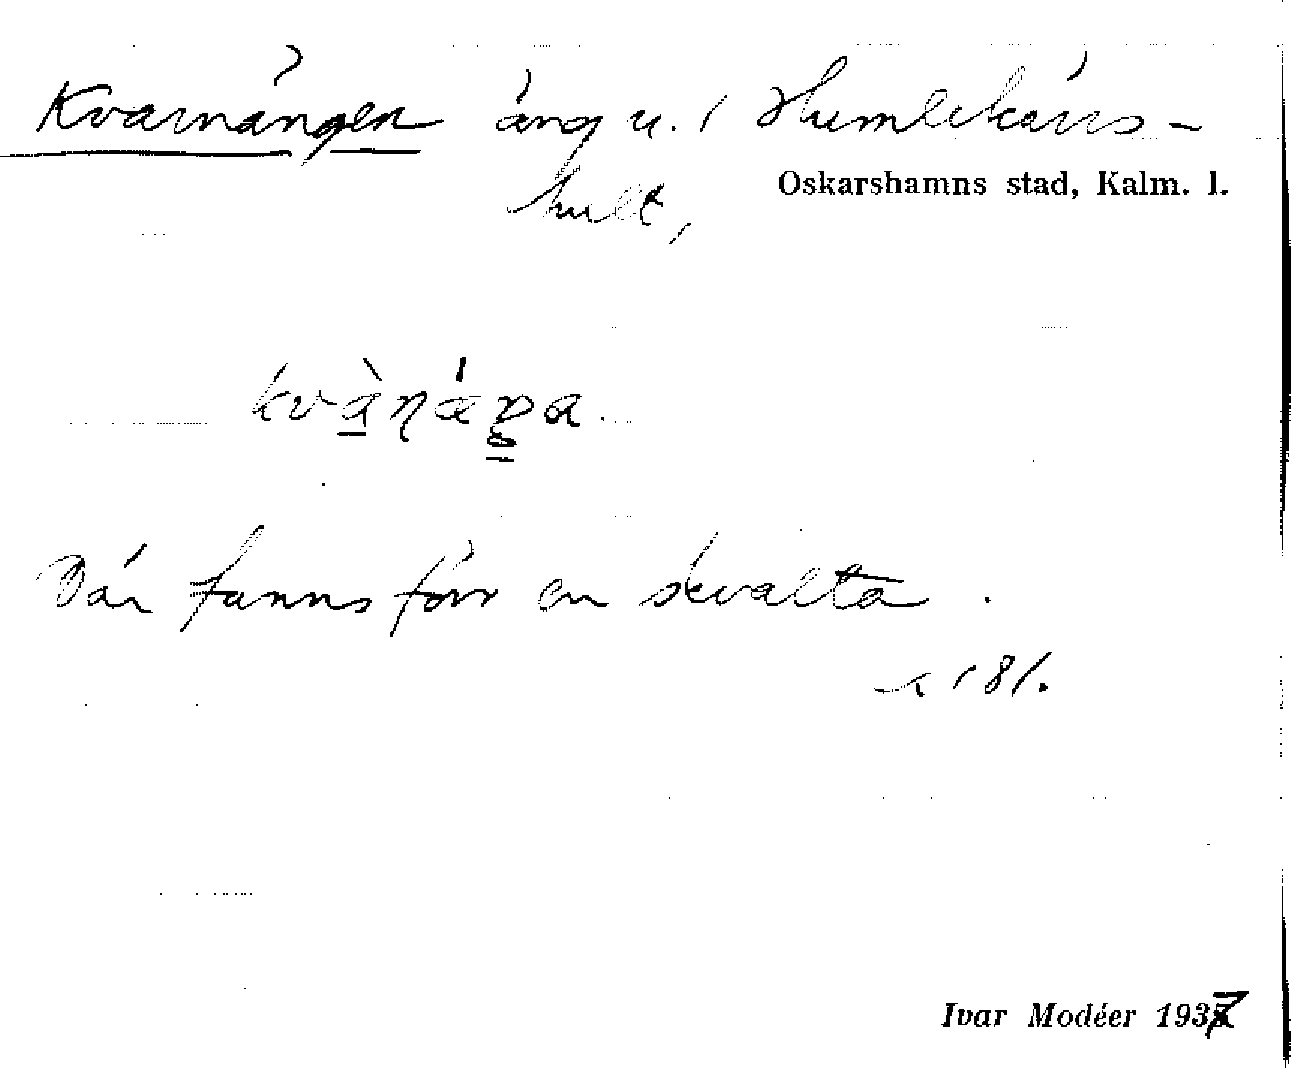 Kvarnängen äng u. i Humlekärrs-
Oskarshamns stad, Kalm. l.
hult,
Där fanns förr en skvalta.
k 181.
Ivar Modéer 1937